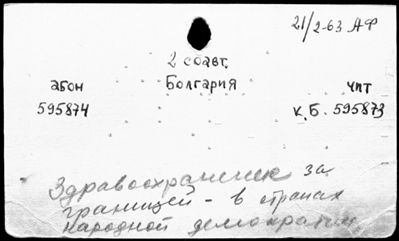 21/2-63 АФ
2 соавт.
Болгария
абон
595874
чпт
к.б. 595873
Здравоохранение за
границей - в странах
народной демократии